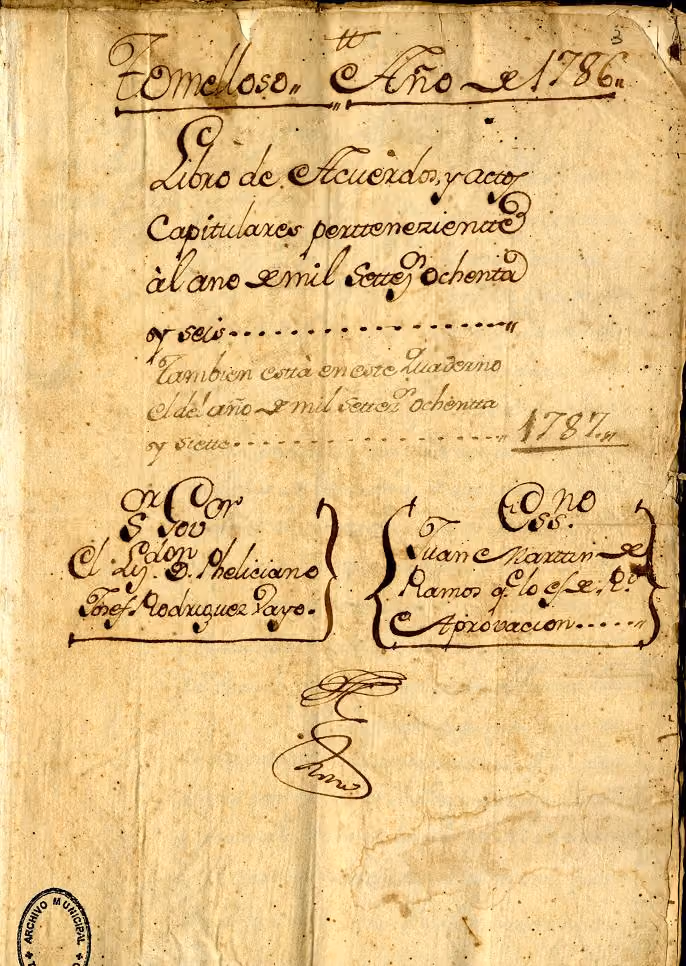 Tomelloso,, Año de 1786,,
Libro de Acuerdos, y actos
Capitulares pertteneziente
àl ano de mil Settezs ochenta
y seis
Tambien està en este Quaderno
el del año de mil Settezs ochentta
y siette 1787,,
Sor Govor
El Lizdo Dn Pheliciano
Josef Rodriguez Payo.
Essno
Juan Martin de
Ramos q lo es de Rl
Aprovacion
ARCHIVO MUNICIPAL